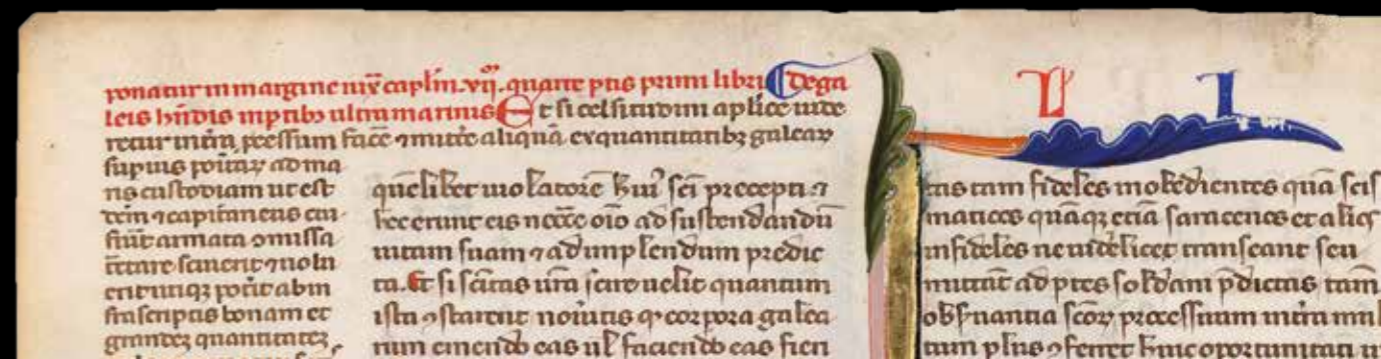 ponatur in margine iux̄ caplm̄ .vij. quarte ptis primi libri De ga
leis hn̄dis in ptibȝ ultramarinis Et si celsitudini aplice uide
retur intra p̄cessum face ⁊ mitte aliquā ex quantitatibȝ galeaꝝ
supius poitaꝝ ad ma
ris custodiam ut est
⁊ capitaneus eni
armata omissa
⁊ nolu
erit utiqȝ potit ab in
frascriptis bonam et
grandeȝ quantitateȝ
quēlibet uiolatorē huiꝰ sc̄i precepti ⁊
hec erunt eis nccē oīo ad sustendandū
uitam suam ⁊ ad implendum predic
ta. Et si scītas ur̄a scire uelit quantum
ista ꝯstarent noueritis qꝫ corpora galea
rum emendo eas ul̄ faciendo eas fieri
L I
tos tam fideles inobedientes quā scis
maticos quāqȝ etiā saracenos et alios
infideles ne uidelicet transeant seu
mittāt ad ptes soldani p̄dictas tam
obs̄uantia sc̄oꝝ processuum intra mul
tum plus ꝯferret huic oportunitati